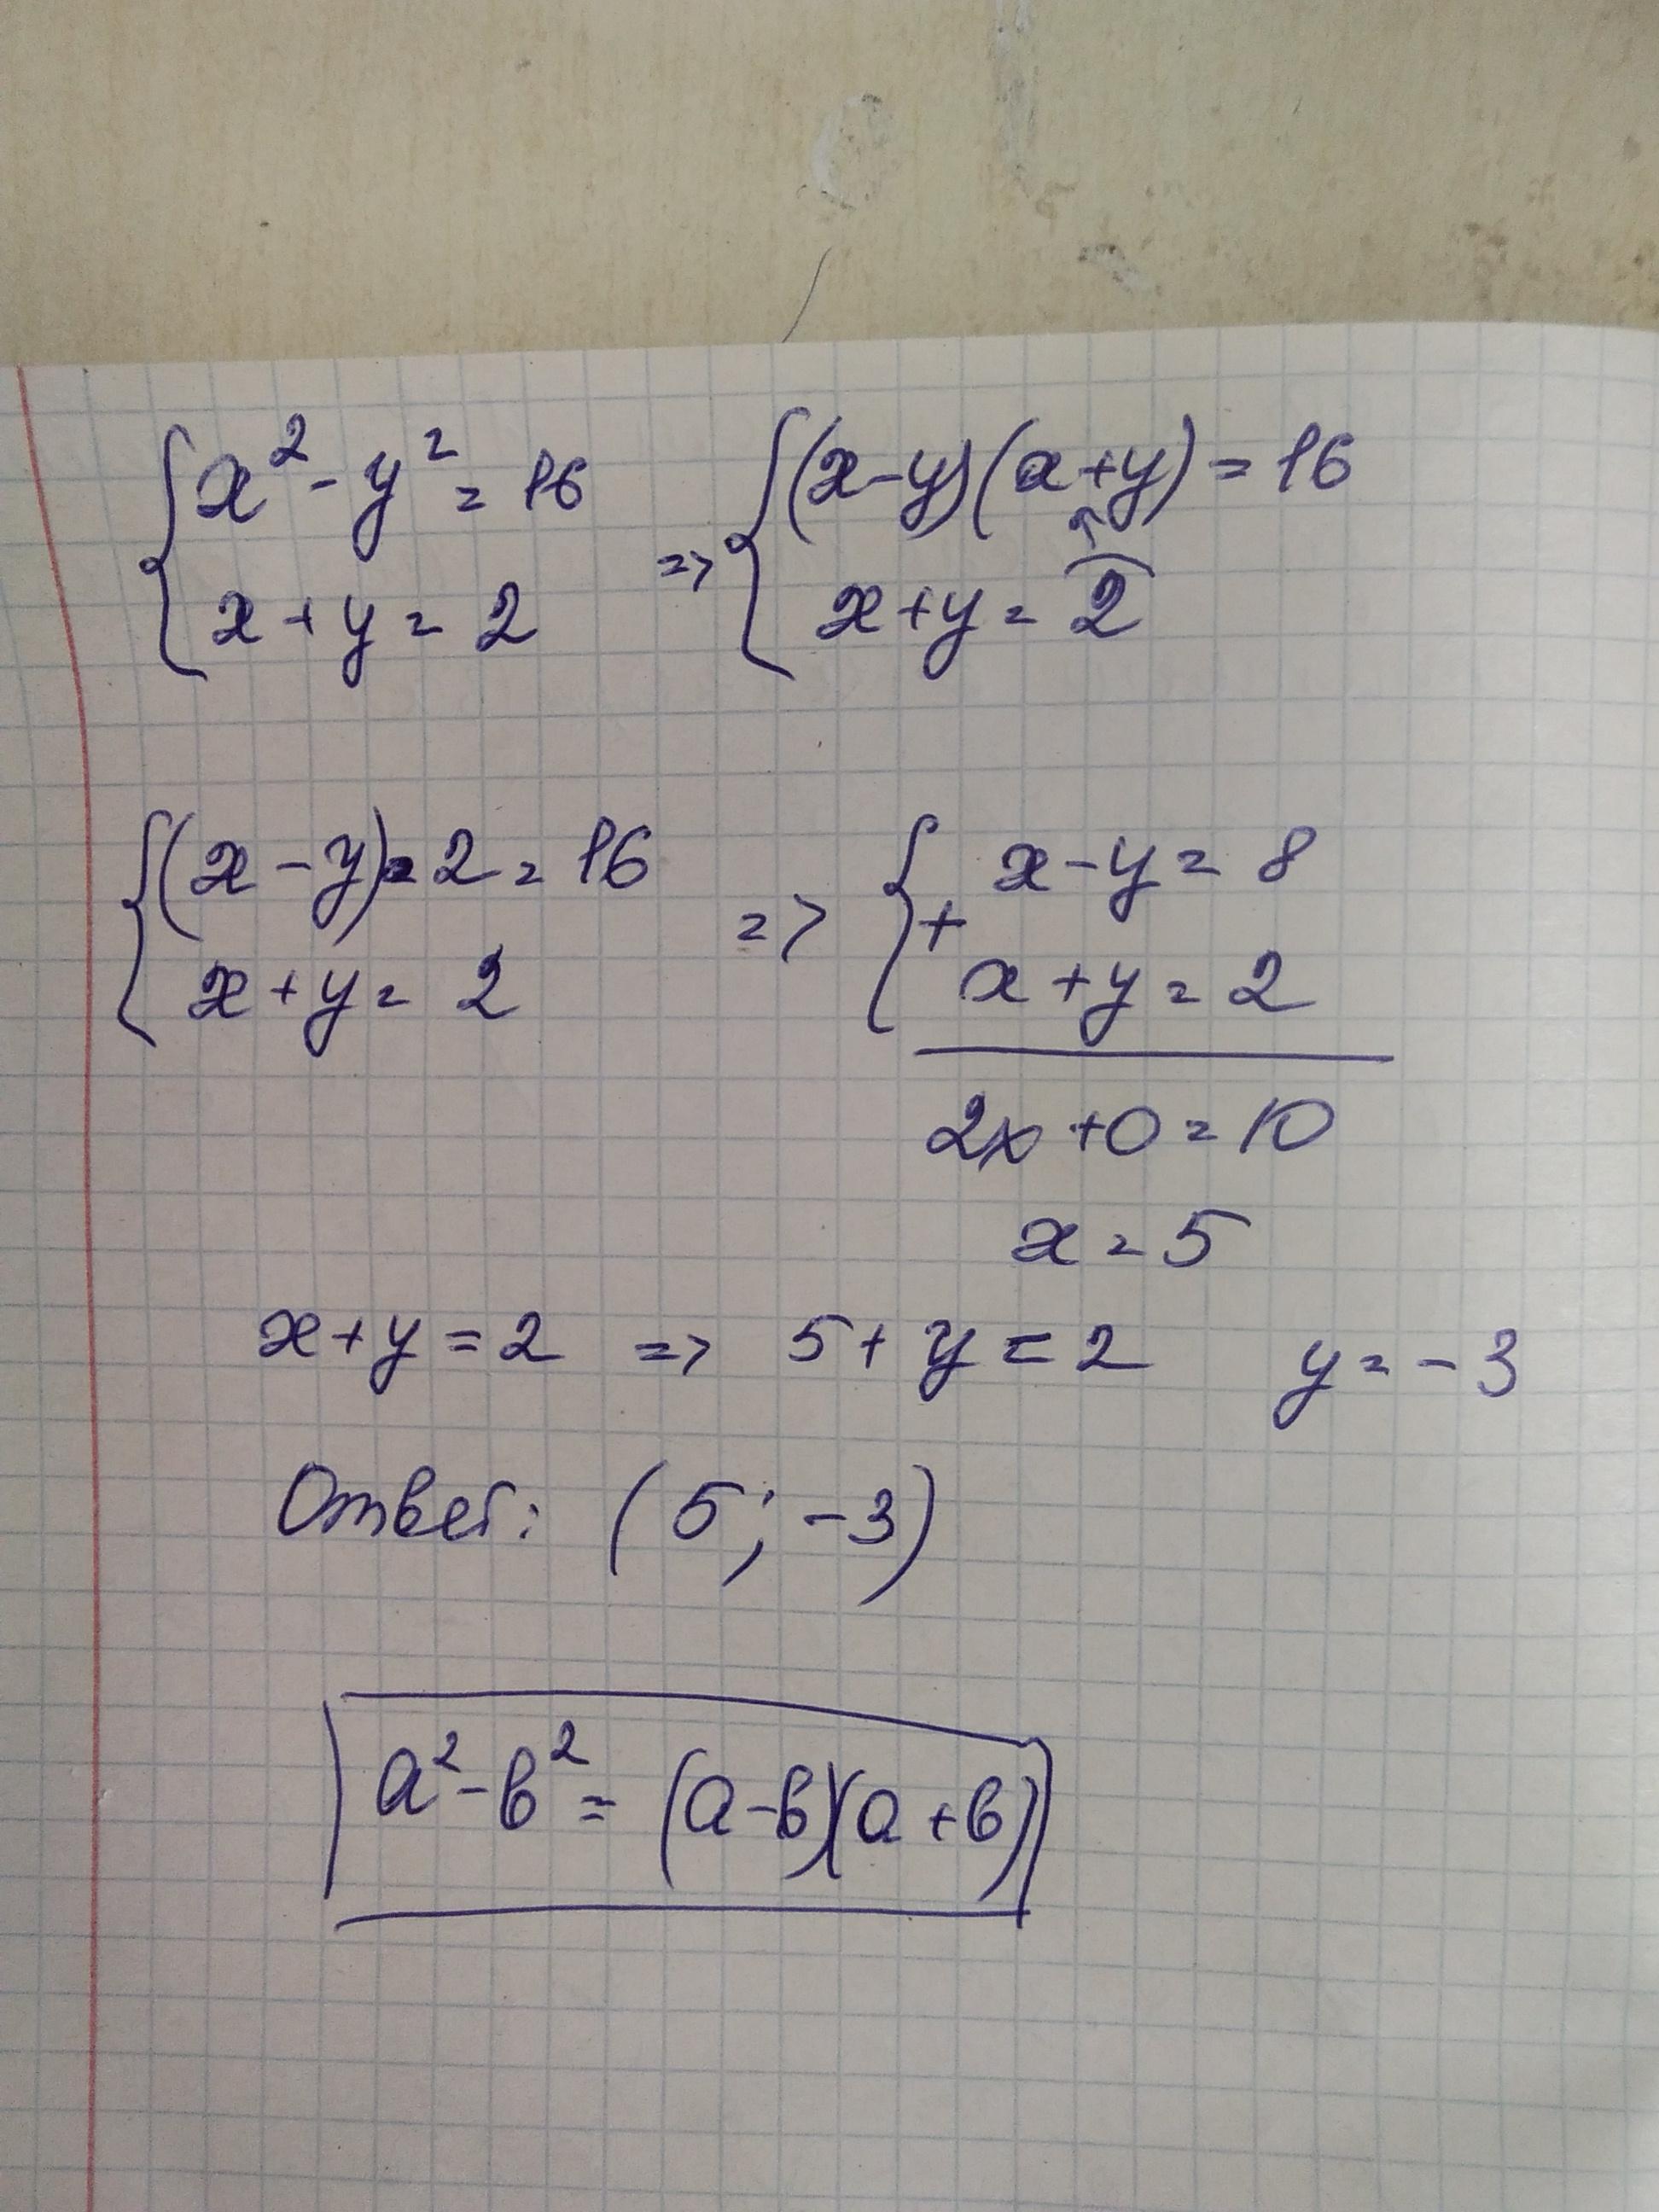 {x² - y² = 16 => {(x-y)(x+y) = 16
x + y = 2 x+y = 2
{(x-y)·2 = 16 => {+ x-y = 8
x+y = 2 x+y = 2
2x+0=10
x = 5
x+y=2 => 5+y=2 y=-3
Ответ: (5; -3)
a²-b² = (a-b)(a+b)